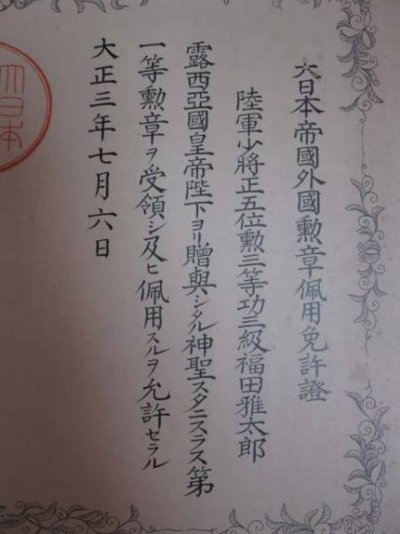 大日本帝國外國勲章佩用免許證
陸軍少將正五位勲三等功三級福田雅太郎
露西亞國皇帝陛下ヨリ贈與シタル神聖スタニスラス第
一等勲章ヲ受領シ及ヒ佩用スルヲ允許セラル
大正三年七月六日
大日本